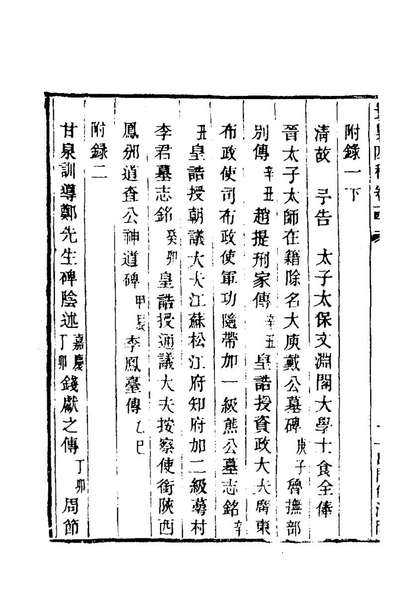 附錄一下
清故 予告 太子太保文淵閣大學士食全俸
晉太子太師在籍除名大庾戴公墓碑 庚子 魯撫部
別傳 辛丑 趙提刑家傳 辛丑 皇誥授資政大夫廣東
布政使司布政使軍功隨帶加一級熊公墓志銘 辛
丑 皇誥授朝議大夫江蘇松江府知府加二級蓴村
李君墓志銘 癸卯 皇誥授通議大夫按察使銜陝西
鳳邠道查公神道碑 甲辰 李鳳臺傳 乙巳
附錄二
甘泉訓導鄭先生碑陰述 嘉慶丁卯 錢獻之傳 丁卯 周節